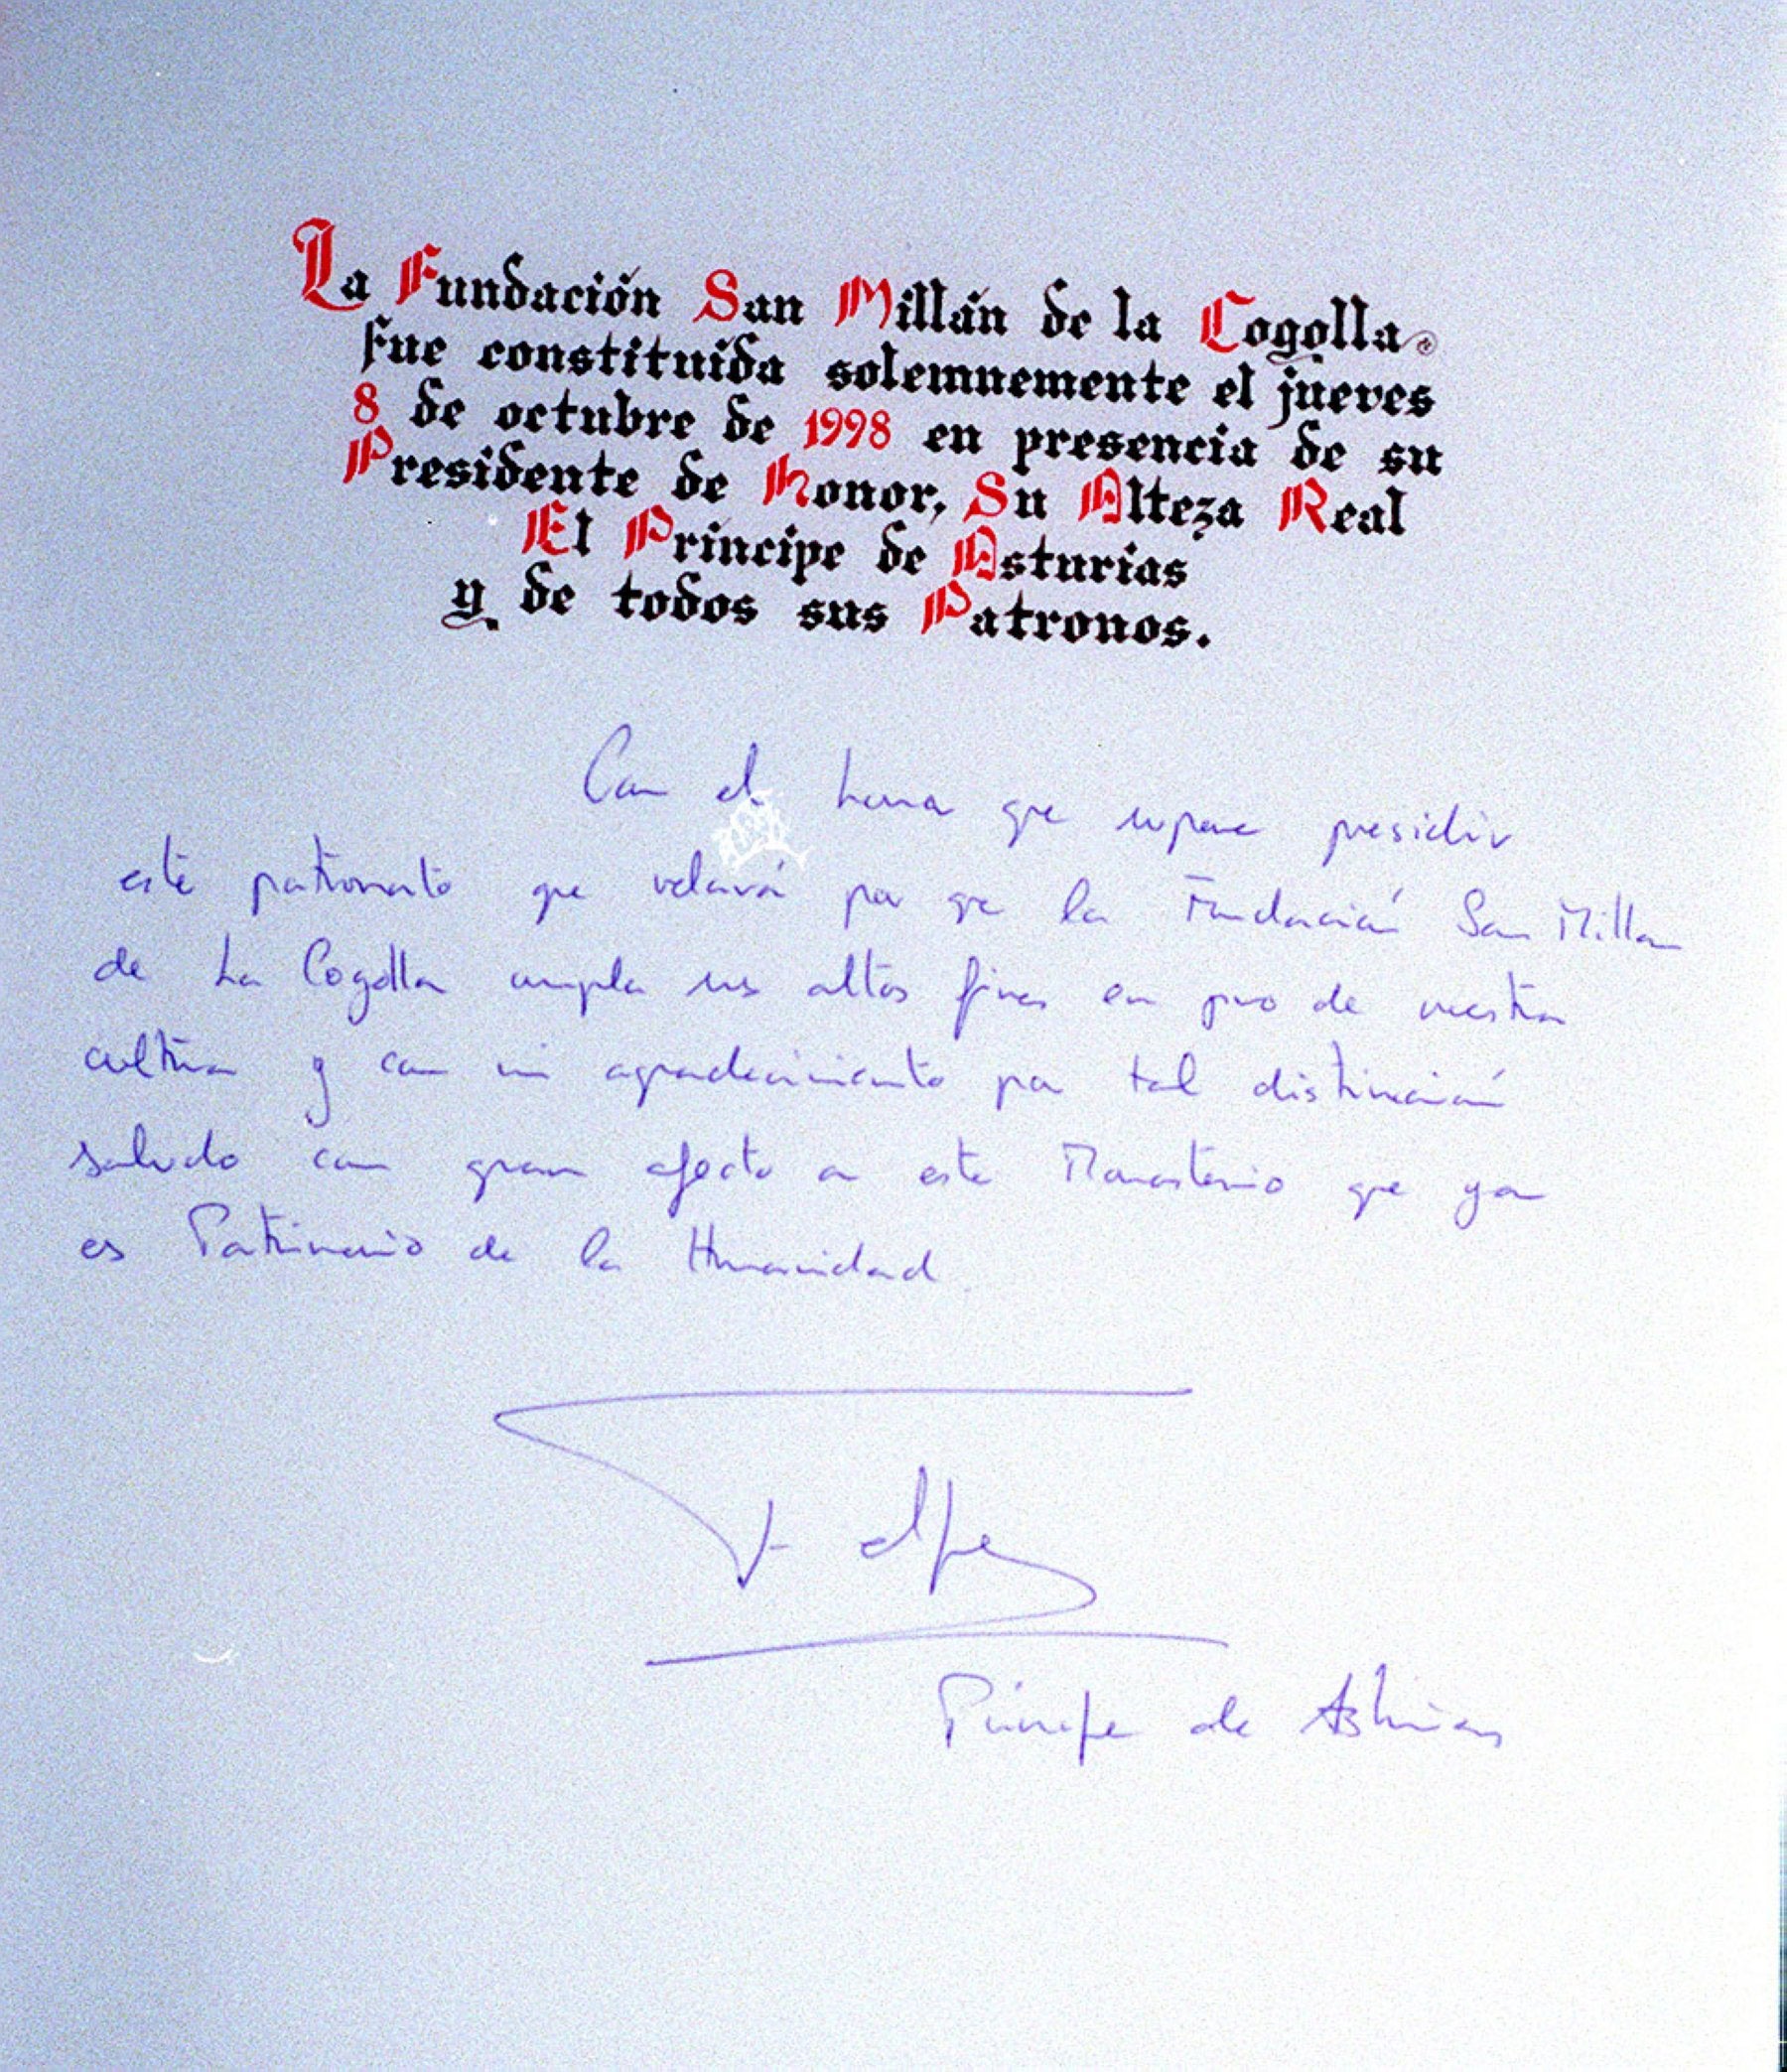 La Fundación San Millán de la Cogolla
fue constituida solemnemente el jueves
8 de octubre de 1998 en presencia de su
Presidente de Honor, Su Alteza Real
El Príncipe de Asturias
y de todos sus Patronos.
Con el honor que supone presidir
este patronato que velará por que la Fundación San Millan
de La Cogolla cumpla sus altos fines en pro de nuestra
cultura y con mi agradecimiento por tal distinción
saludo con gran afecto a este Monasterio que ya
es Patrimonio de la Humanidad
Felipe
Príncipe de Asturias